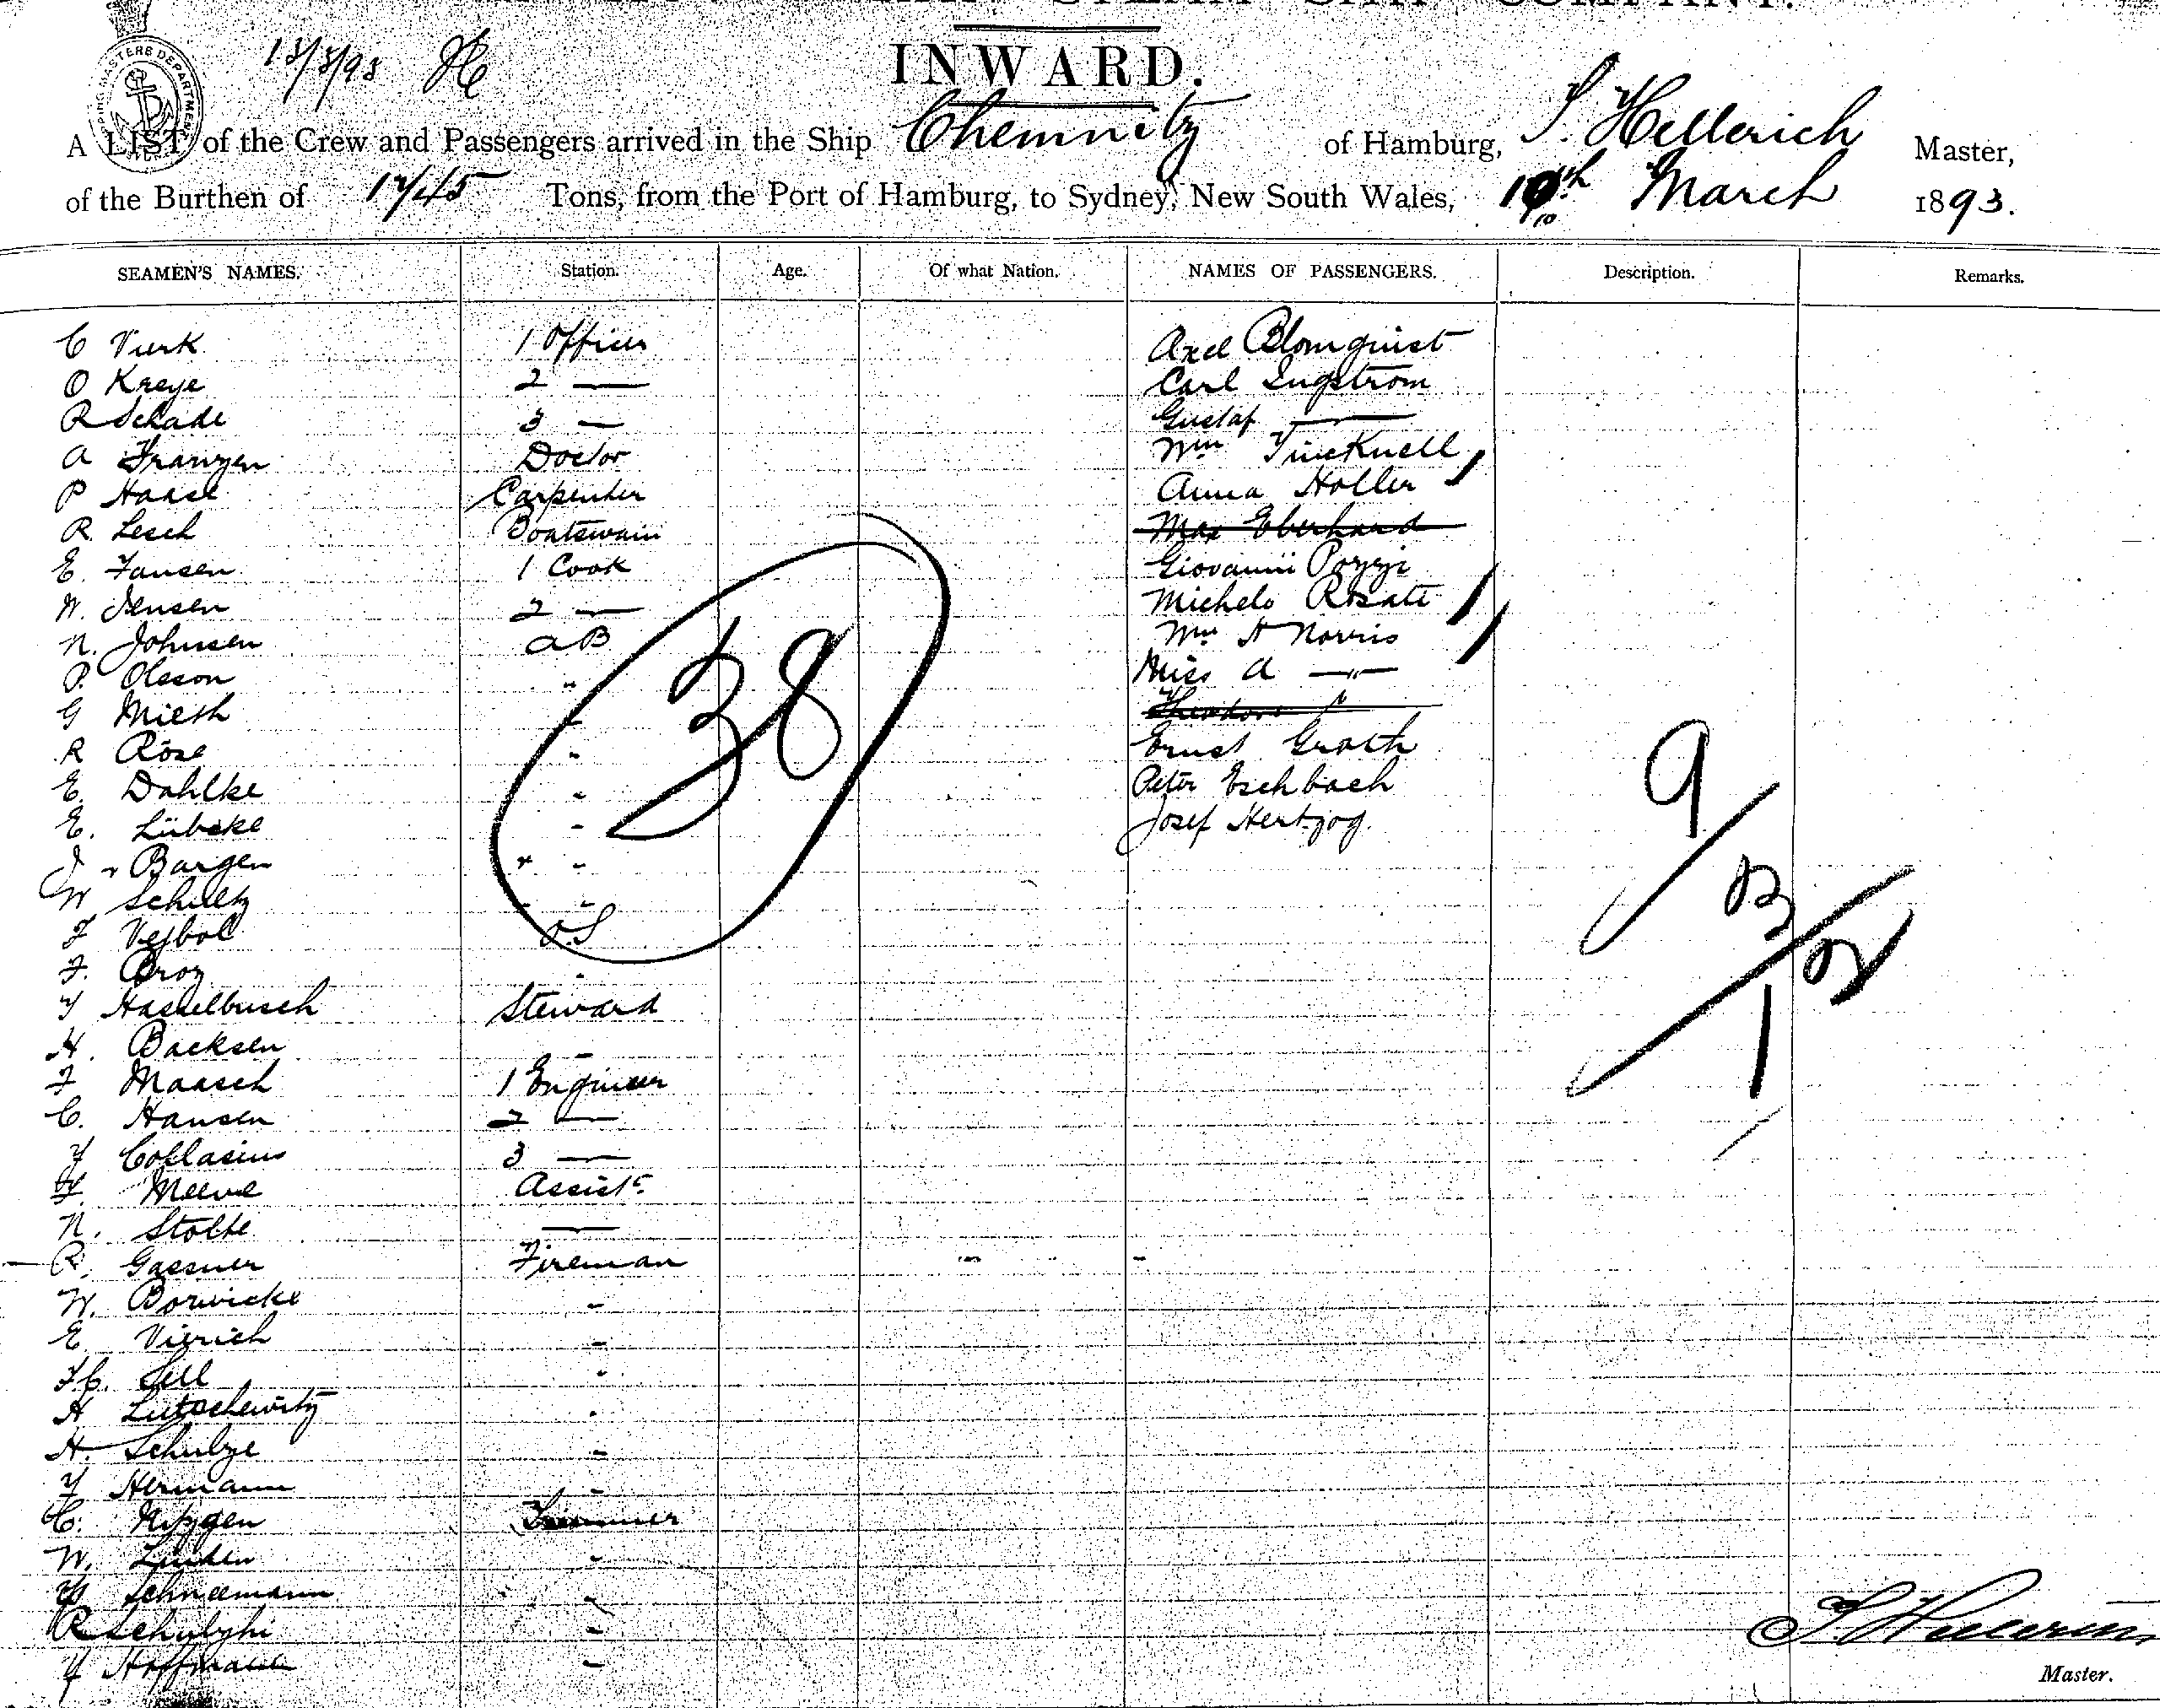 STEAM SHIP COMPANY.
INWARD.
13/3/93
A LIST of the Crew and Passengers arrived in the Ship Chemnitz of Hamburg, Hellerich Master,
of the Burthen of Tons, from the Port of Hamburg, to Sydney, New South Wales, 10th March 1893.
SEAMEN'S NAMES. Station. Age. Of what Nation. NAMES OF PASSENGERS. Description. Remarks.
C Vierk 1 Officer Axel Blomquist
O Kreye 2 — Carl Engstrom
R Schade 3 — Gustaf —
A Franzen Doctor Wm Tincknell
P Haase Carpenter Anna Holler
R. Lesch Boatswain Max Eberhard
E. Jansen 1 Cook Giovanni Pozzi
W. Jensen 2 — Michele Rosati
N. Johnsen AB Wm H Norris
P. Olsson " Miss A —"—
G Mieth " Theodore "
R Röse " Ernst Groth
E. Dahlke " Peter Eschbach
E. Lübcke " Josef Hertzog.
J v Bargen "
W Schultz "
F Vejbol O.S
F. Broz "
J Hasselbusch Steward
H. Backsen —
F Maasch 1 Engineer
C. Hansen 2 —
J Collasius 3 —
Meeve Assist.
N. Stolte —
R. Gassner Fireman
W. Borwicke "
E Vierich "
F.C. Sell "
H Lutschewitz "
H. Schulze "
J Hermann "
C. Nipzgen Trimmer
W. Linden "
Schneemann "
R Schulzki "
J Hoffmann "
38
9
3/2
1
Master.